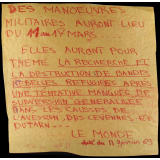 DES MANOEUVRES
MILITAIRES AURONT LIEU
DU 11 au 17 MARS.
ELLES AURONT POUR
THEME LA RECHERCHE ET
LA DESTRUCTION DE BANDES
REBELLES REFUGIEES APRES
UNE TENTATIVE MANQUEE DE
SUBVERSION GENERALISEE
DANS LES CAUSSES DE
L'AVEYRON, DES CEVENNES ET
DU TARN
LE MONDE